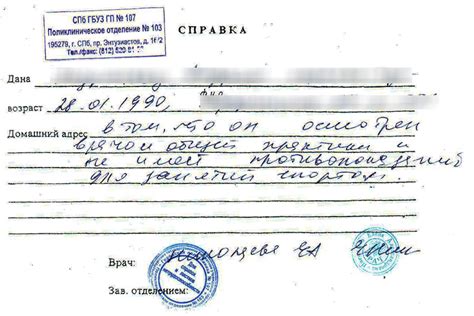 СПб ГБУЗ ГП № 107
Поликлиническое отделение № 103
195279, г. СПб, пр. Энтузиастов, д. 16/2
Тел./факс: (812) 520-81-
СПРАВКА
Дана
возраст 28.01.1990,
Домашний адрес в том, что он осмотрен
врачом общей практики и
не имеет противопоказаний
для занятий спортом.
Врач:
Зав. отделением: